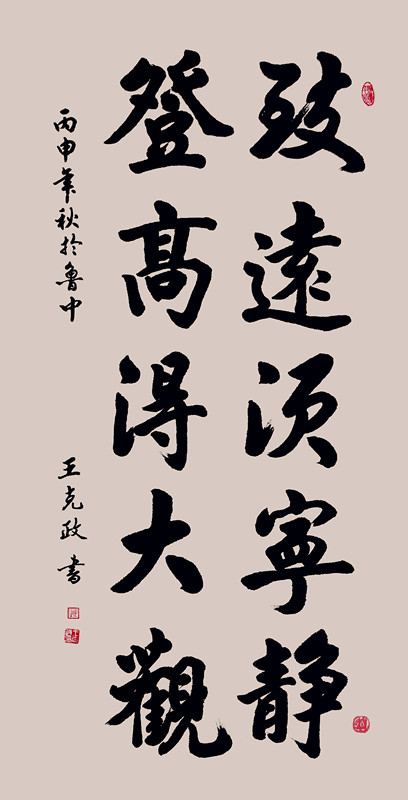 致遠须寧静
登高得大觀
丙申年秋於魯中
王克政書